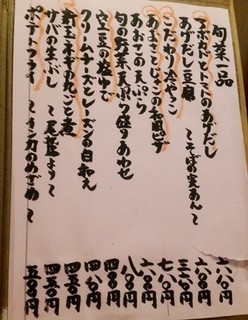 旬菜一品
アボカドとトマトのあげだし 六八〇円
あげだし豆腐 〜そばの実あん〜 六〇〇円
こだわり冷やっこ 三八〇円
あおさとじゃこの和風ピザ 七八〇円
あおさの天ぷら 六〇〇円
旬の野菜天ぷら盛りあわせ 八〇〇円
空豆の塩ゆで 四八〇円
クリームチーズとレーズンの白和え 四八〇円
新玉ネギの丸ごと煮 四五〇円
サバのへしこ 〜尾鷲より〜 四五〇円
ポテトフライ 〜キタアカリのめざめ〜 五〇〇円